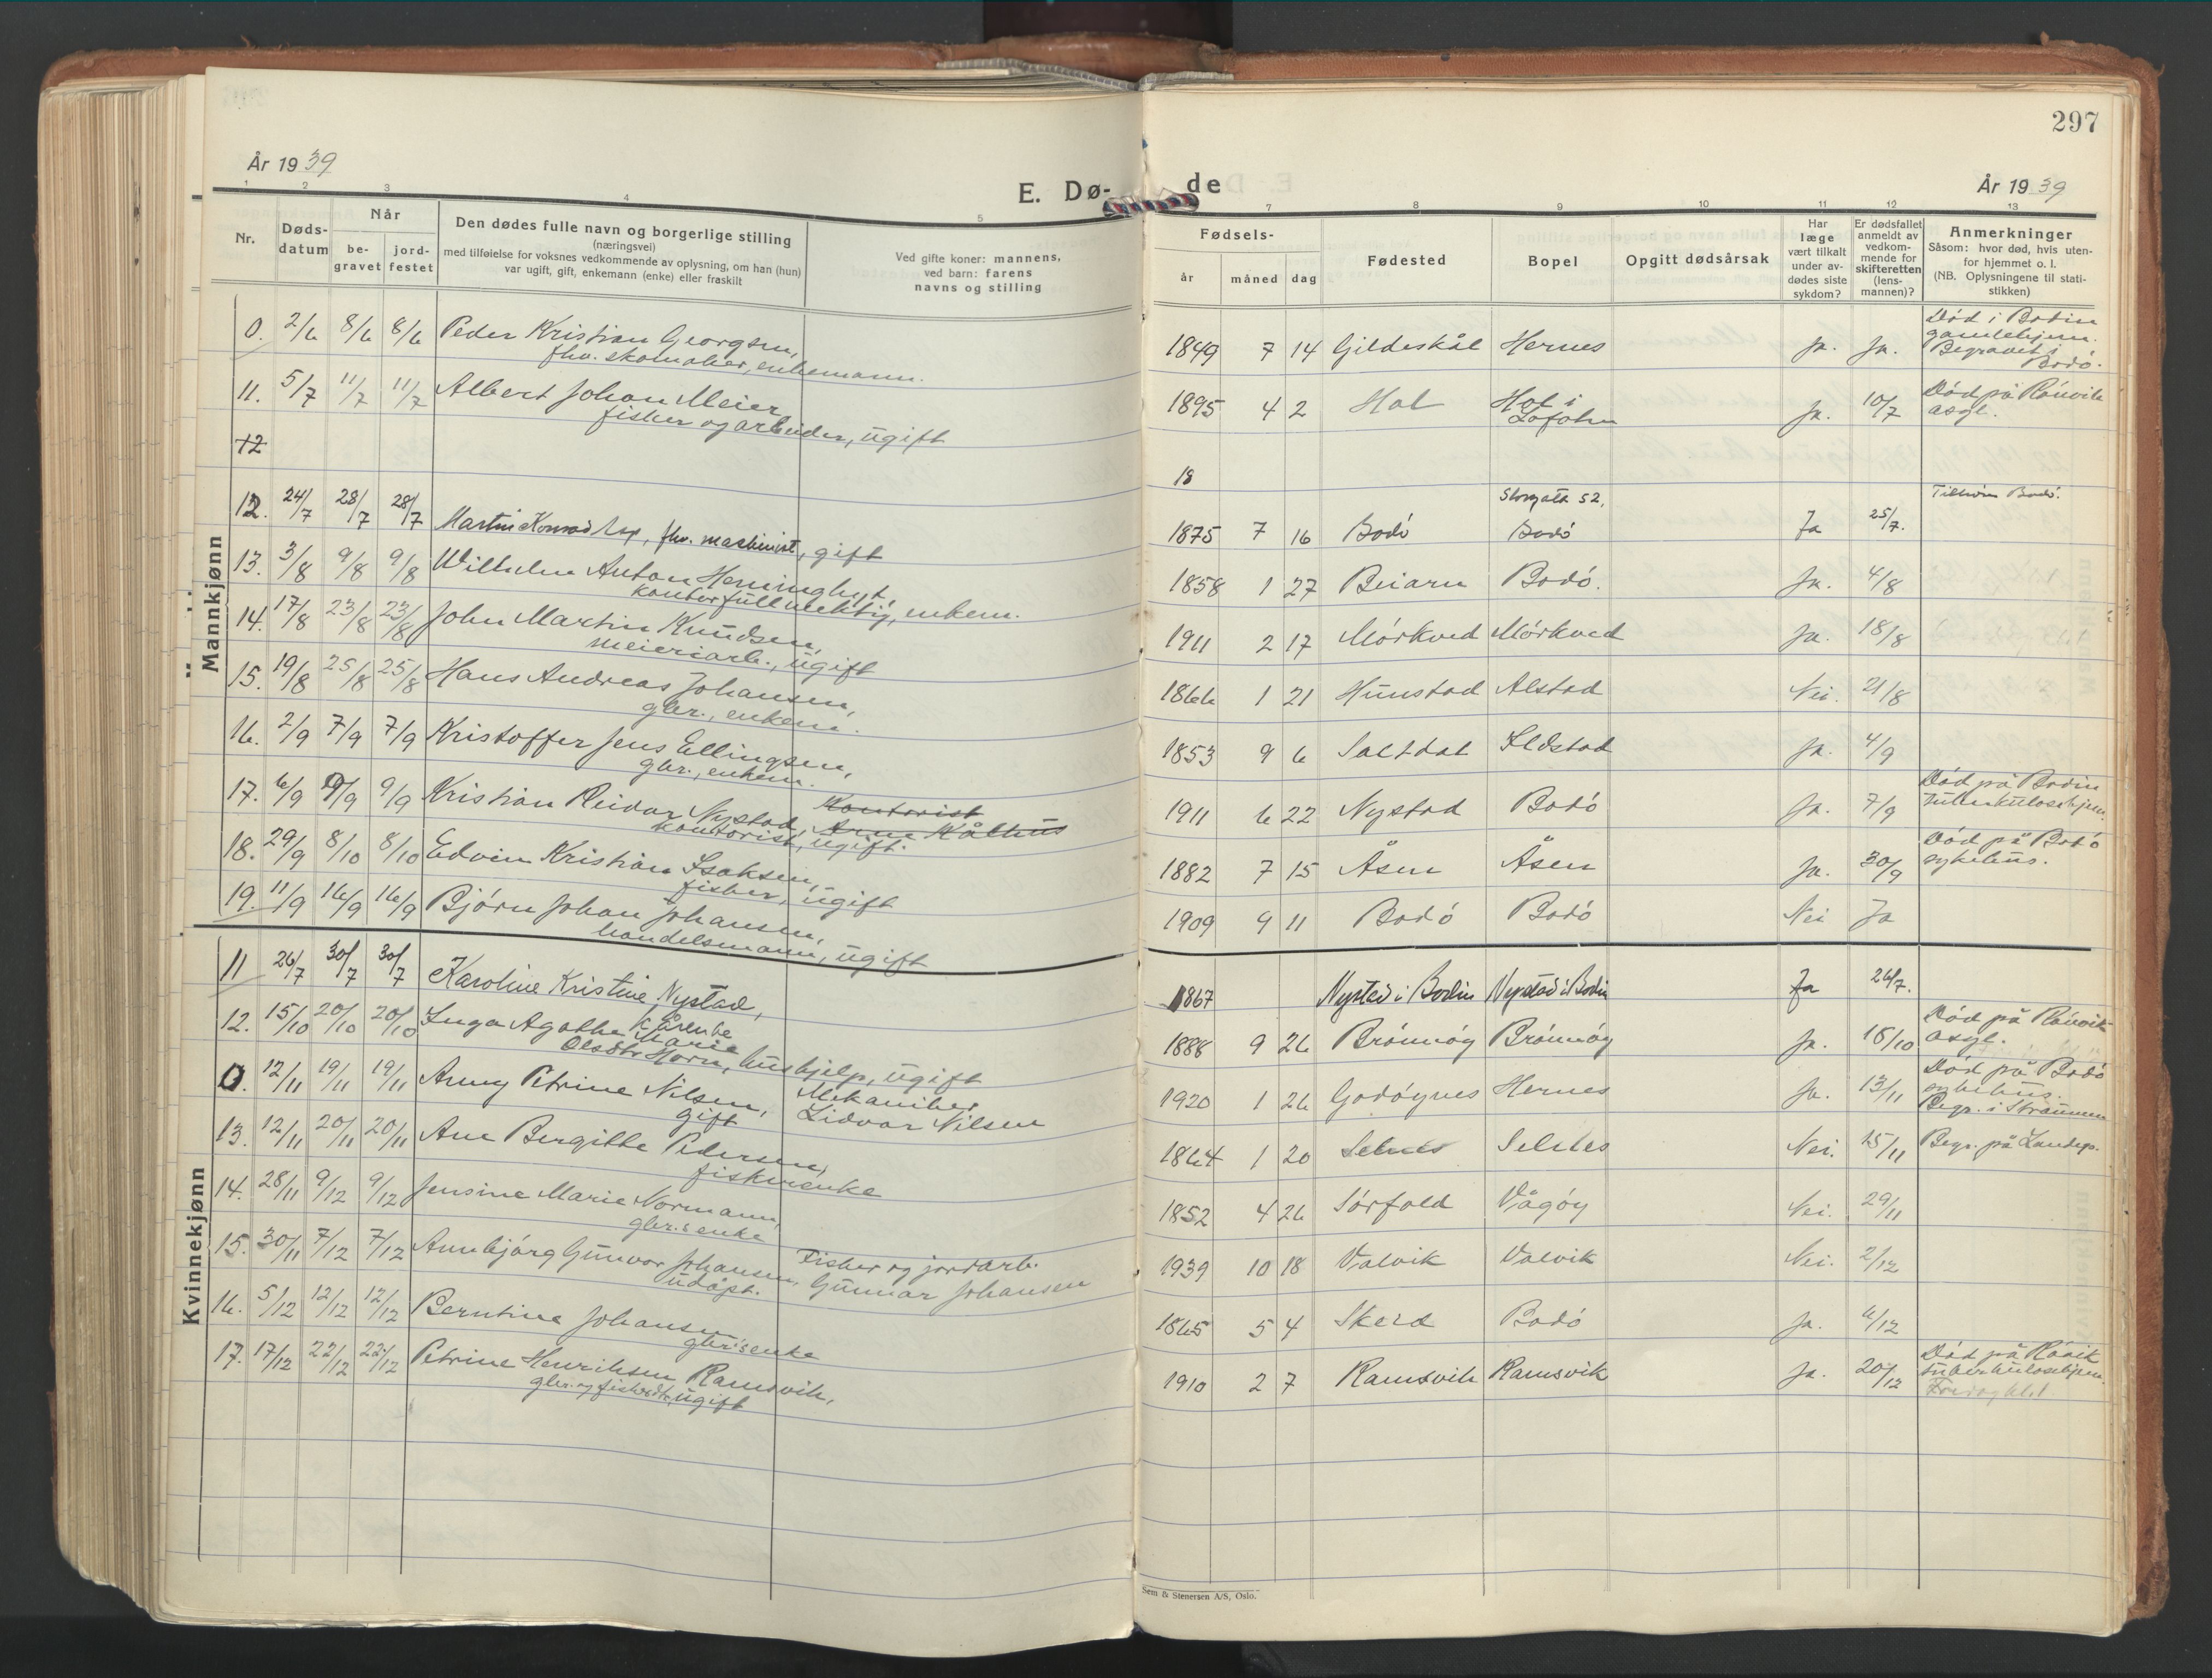 297
År 1939
E. Dø-
de
År 1939
1 2 3 4 5 7 8 9 10 11 12 13
Nr.
Døds-
datum
Når
be-
gravet
jord-
festet
Den dødes fulle navn og borgerlige stilling
(næringsvei)
med tilføielse for voksnes vedkommende av oplysning, om han (hun)
var ugift, gift, enkemann (enke) eller fraskilt
Ved gifte koner: mannens,
ved barn: farens
navns og stilling
Fødsels-
år
måned
dag
Fødested
Bopel
Opgitt dødsårsak
Har
læge
vært tilkalt
under av-
dødes siste
sykdom?
Er dødsfallet
anmeldt av
vedkom-
mende for
skifteretten
(lens-
mannen)?
Anmerkninger
Såsom: hvor død, hvis uten-
for hjemmet o. l.
(NB. Oplysningene til stati-
stikken)
Mannkjønn
0. 2/6 8/6 8/6 Peder Kristian Georgsen,
fhv. skomaker, enkemann.
1849 7 14 Gildeskål Hernes Ja. Ja.
Død i Bodin
gamlehjem.
Begravet i
Bodó.
11. 5/7 11/7 11/7 Albert Johan Meier,
fisker og arbeider, ugift
1895 4 2 Hol Hol i
Lofoten
Ja. 10/7
Død på Rónvik
asyl.
12
18
12. 24/7 28/7 28/7 Martin Konrad, fhv. maskinist, gift
1875 7 16 Bodó
Storgata 52,
Bodó
Ja 25/7.
Tilhører Bodó.
13. 3/8 9/8 9/8 Wilhelm Anton
kontorfullmektig, enkem.
1858 1 27 Beiarn Bodó. Ja. 4/8
14. 17/8 23/8 23/8 John Martin Knudsen,
meieriarb., ugift
1911 2 17 Mórkved Mórkved Ja. 18/8
15. 19/8 25/8 25/8 Hans Andreas Johansen,
gbr., enkem.
1866 1 21 Hunstad Alstad Nei. 21/8
16. 2/9 7/9 7/9 Kristoffer Jens Ellingsen,
gbr., enkem.
1853 9 6 Saltdal Ildstad Ja. 4/9
17. 6/9 9/9 9/9 Kristian Reidar Nystad,
kontorist, ugift.
Kontorist
Arne Kålhus
1911 6 22 Nystad Bodó Ja. 7/9
Død på Bodin
tuberkulosehjem.
18. 29/9 8/10 8/10 Edvin Kristian Isaksen,
fisker, ugift
1882 7 15 Åsen Åsen Ja. 30/9
Død på Bodó
sykehus.
19. 11/9 16/9 16/9 Bjórn Johan Johansen,
handelsmann, ugift
1909 9 11 Bodó Bodó Nei Ja
Kvinnekjønn
11 26/7 30/7 30/7 Karoline Kristine Nystad,
1867 Nystad i Bodin Nystad i Bodin Ja 26/7.
12. 15/10 20/10 20/10 Inga Agathe Marie
Olsdtr Horn, hushjelp, ugift
1888 9 26 Brónnóy Brónnóy Ja. 18/10
Død på Rónvik
asyl.
0. 12/11 19/11 19/11 Anny Petrine Nilsen,
gift
Mekaniker
Lidvar Nilsen
1920 1 26 Godóynes Hernes Ja. 13/11
Død på Bodó
sykehus.
Begr. i Straumen
13. 12/11 20/11 20/11 Ane Bergitte Pedersen,
fiskerenke
1864 1 20 Selnes Selnes Nei. 15/11
Begr. på Landego.
14. 28/11 9/12 9/12 Jensine Marie Normann,
gbr.s enke
1852 4 26 Sórfold Vågóy Nei. 29/11
15. 30/11 7/12 7/12 Annbjórg Gunvor Johansen,
udópt.
Fisker og jordarb.
Gunnar Johansen
1939 10 18 Valvik Valvik Nei. 2/12
16. 5/12 12/12 12/12 Berntine Johansen
gbr.s enke
1865 5 4 Skeid Bodó Ja. 6/12
17. 17/12 22/12 22/12 Petrine Henriksen Ramsvik,
gbr. og fiskerdtr., ugift
1910 2 7 Ramsvik Ramsvik Ja. 20/12
Død på Rónvik
tuberkulosehjem.
Sem & Stenersen A/S, Oslo.